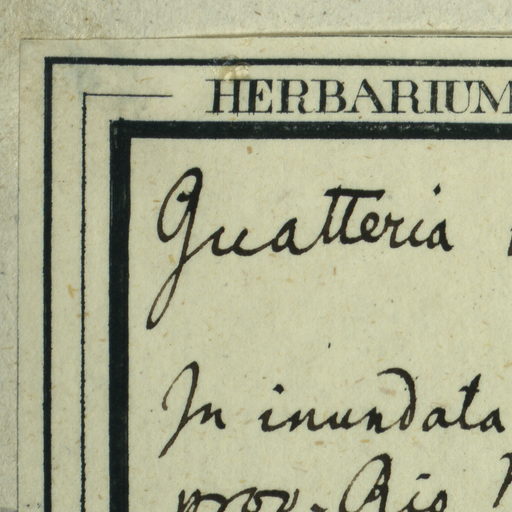 HERBARIUM
Guatteria
In inundata
prov. Rio